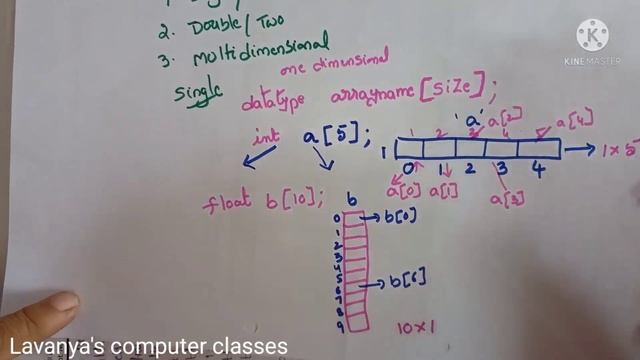 2. Double/Two
3. multidimensional
single
one dimensional
datatype arrayname[size];
int a[5];
'a'
a[2]
a[4]
1 2 3 4 5
1
1×5
0 1 2 3 4
a[0] a[1] a[3]
float b[10];
b
0
b[0]
1
2
3
4
5
6
b[6]
7
8
9
10×1
K
KINEMASTER
Lavanya's computer classes